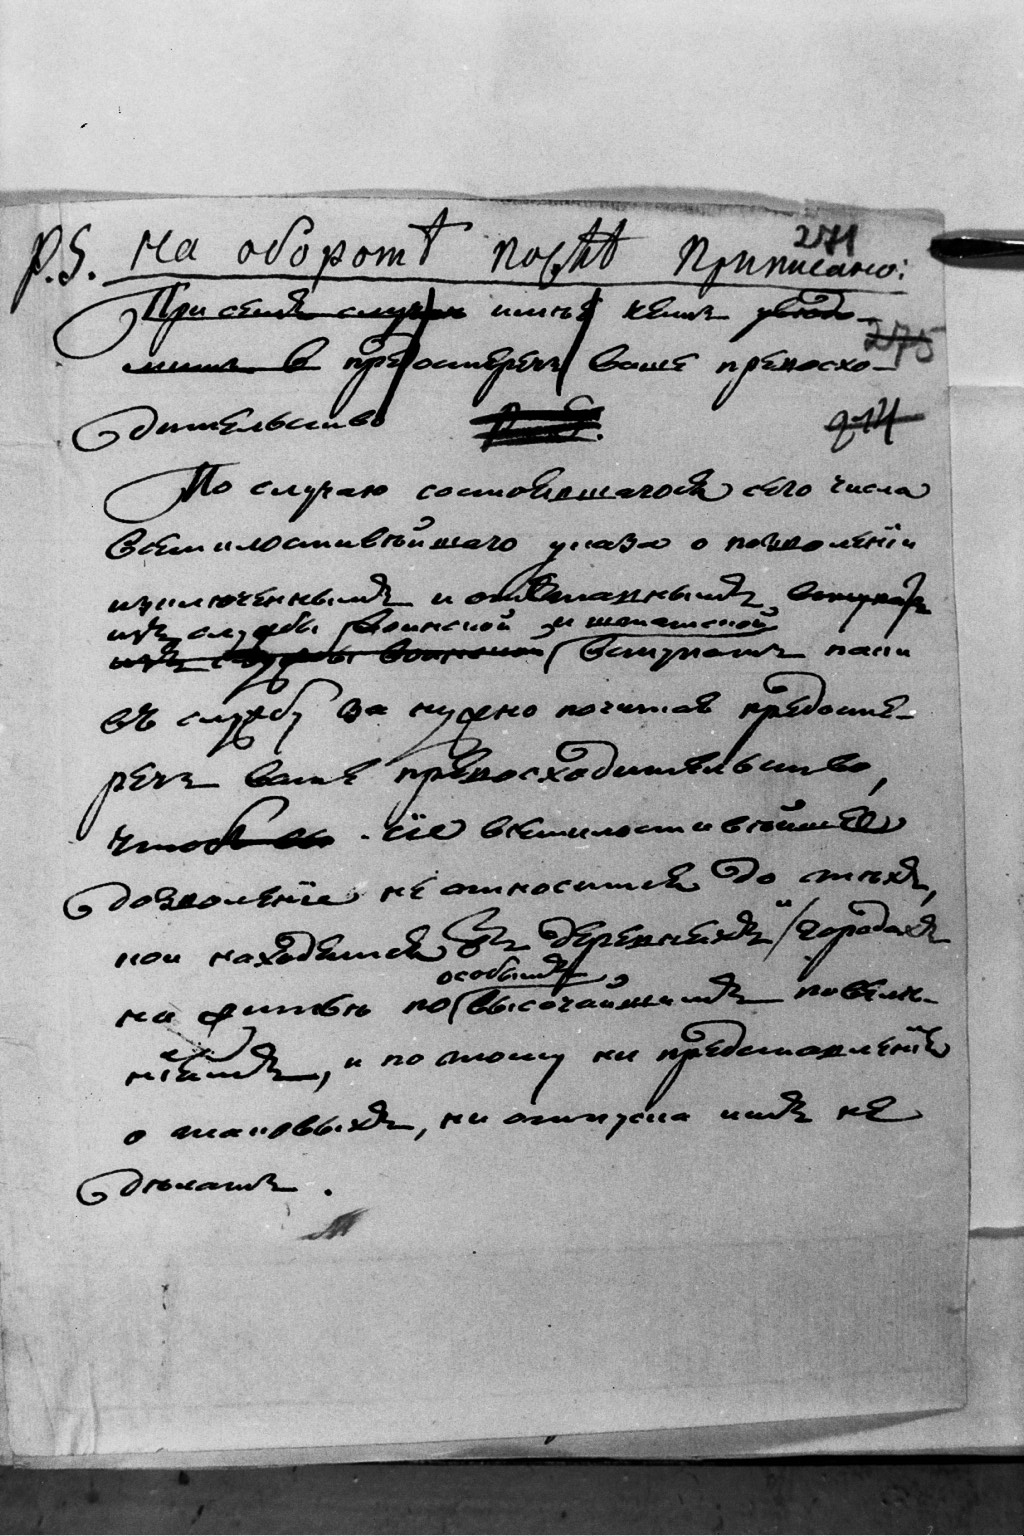 271
P.S. На оборотѣ послѣ приписано:
При семъ случаѣ имѣю честь уведо-
275
мить и предостеречь ваше превосхо-
дительство
274
По случаю состоявшагося сего числа
всемилостивѣйшаго указа о позволенїи
изключеннымъ и отставнымъ
изъ службы воинской и штатской
изъ службы воинской вступать паки
въ службу за нужно почитаю предосте-
речь ваше превосходительство,
чтобъ сїе всемилостивѣйшее
дозволенїе не относится до тѣхъ,
кои находятся въ деревняхъ и городахъ
особымъ
на житьѣ по высочайшимъ повелѣ-
нїямъ, и потому ни представленїй
о таковыхъ, ни отпуска имъ не
дѣлать.